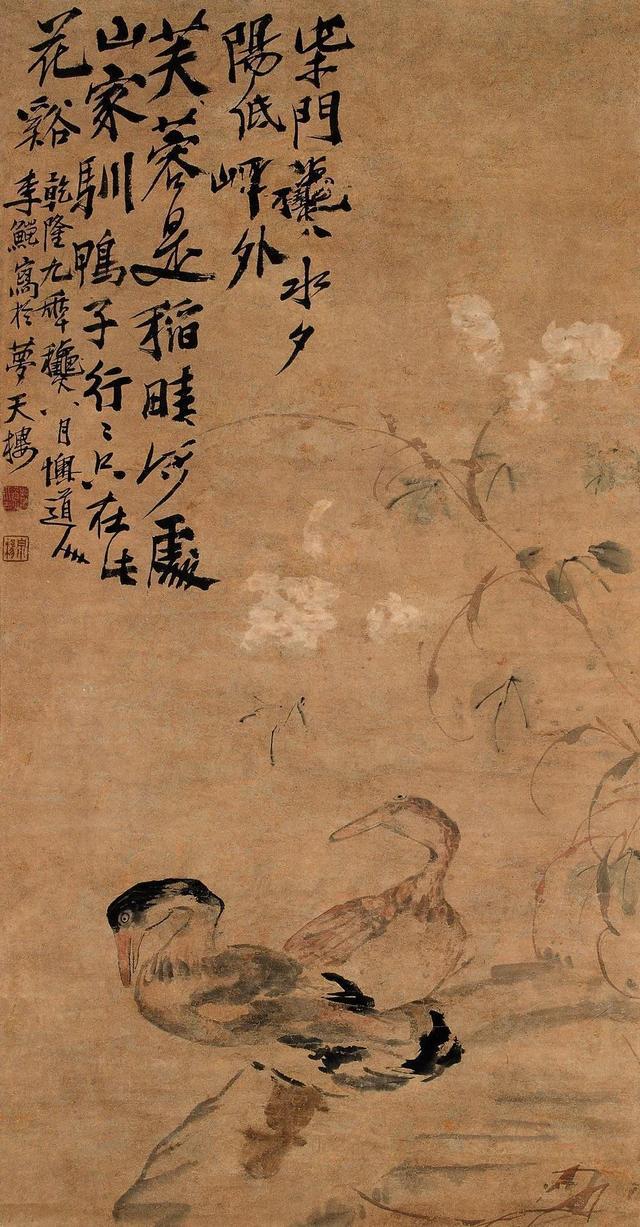 柴門龝水夕
陽低岸外
芙蓉是稻畦何處
山家馴鴨子行〻只在浣
花谿
乾隆九年龝八月懊道人
李鱓寫於夢天樓